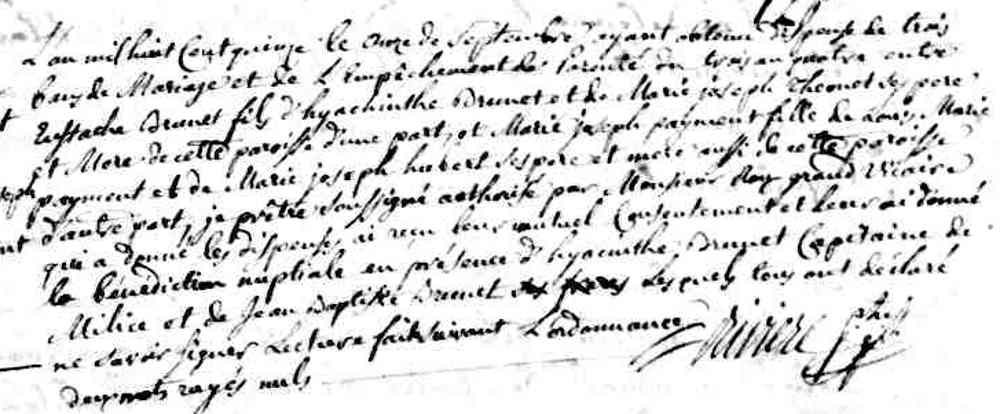 L'an mil huit Cent quinze le onze de Septembre ayant obtenu dispense de trois
bans de Mariage et de l'Empêchement de Parenté du trois au quatre entre
Eustache Brunet fils d'hyacinthe Brunet et de Marie joseph Theoret ses pere
et Mere de cette paroisse d'une part, et Marie joseph payment fille de Louis Marie
payment et de Marie joseph hubert ses pere et mere aussi de cette paroisse
d'autre part, je prêtre soussigné authorisé par Monsieur Roy grand Vicaire
qui a donné les dispenses, ai reçu leur mutuel Consentement et leur ai donné
la bénédiction nuptiale en présence d'hyacinthe Brunet Capitaine de
Milice et de Jean Baptiste Brunet lesquels tous ont déclaré
ne savoir signer Lecture faite suivant L'ordonnance
deux mots rayés nuls